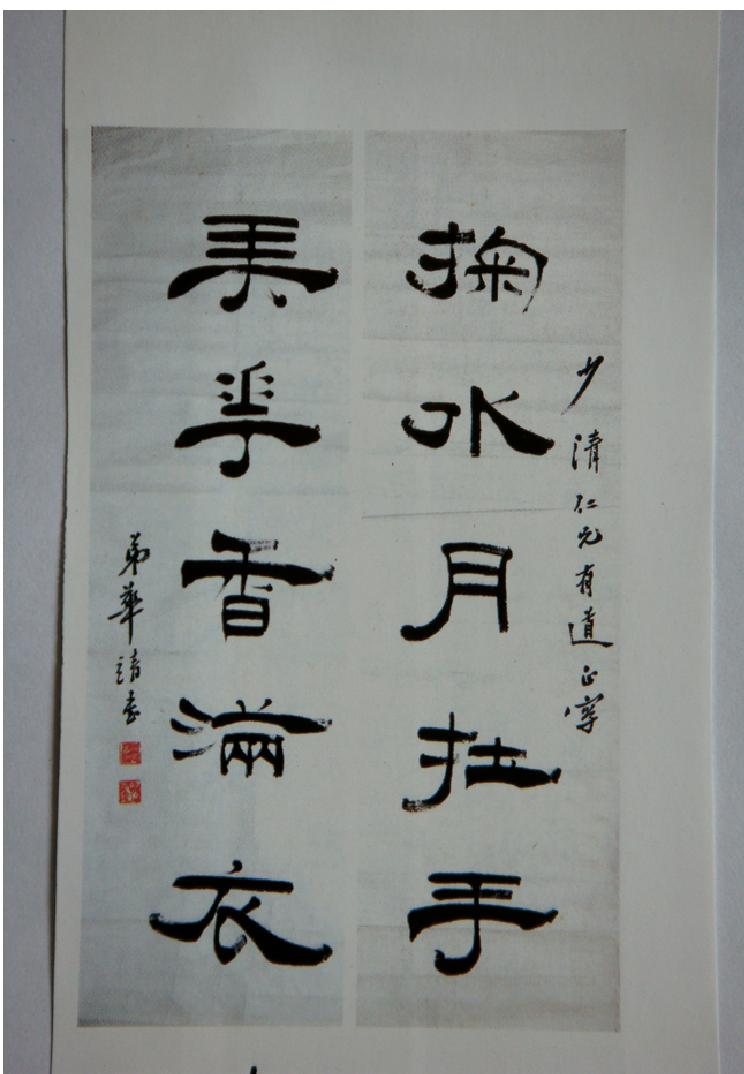 少清仁兄有道正字
掬水月在手
弄華香滿衣
弟華靖書